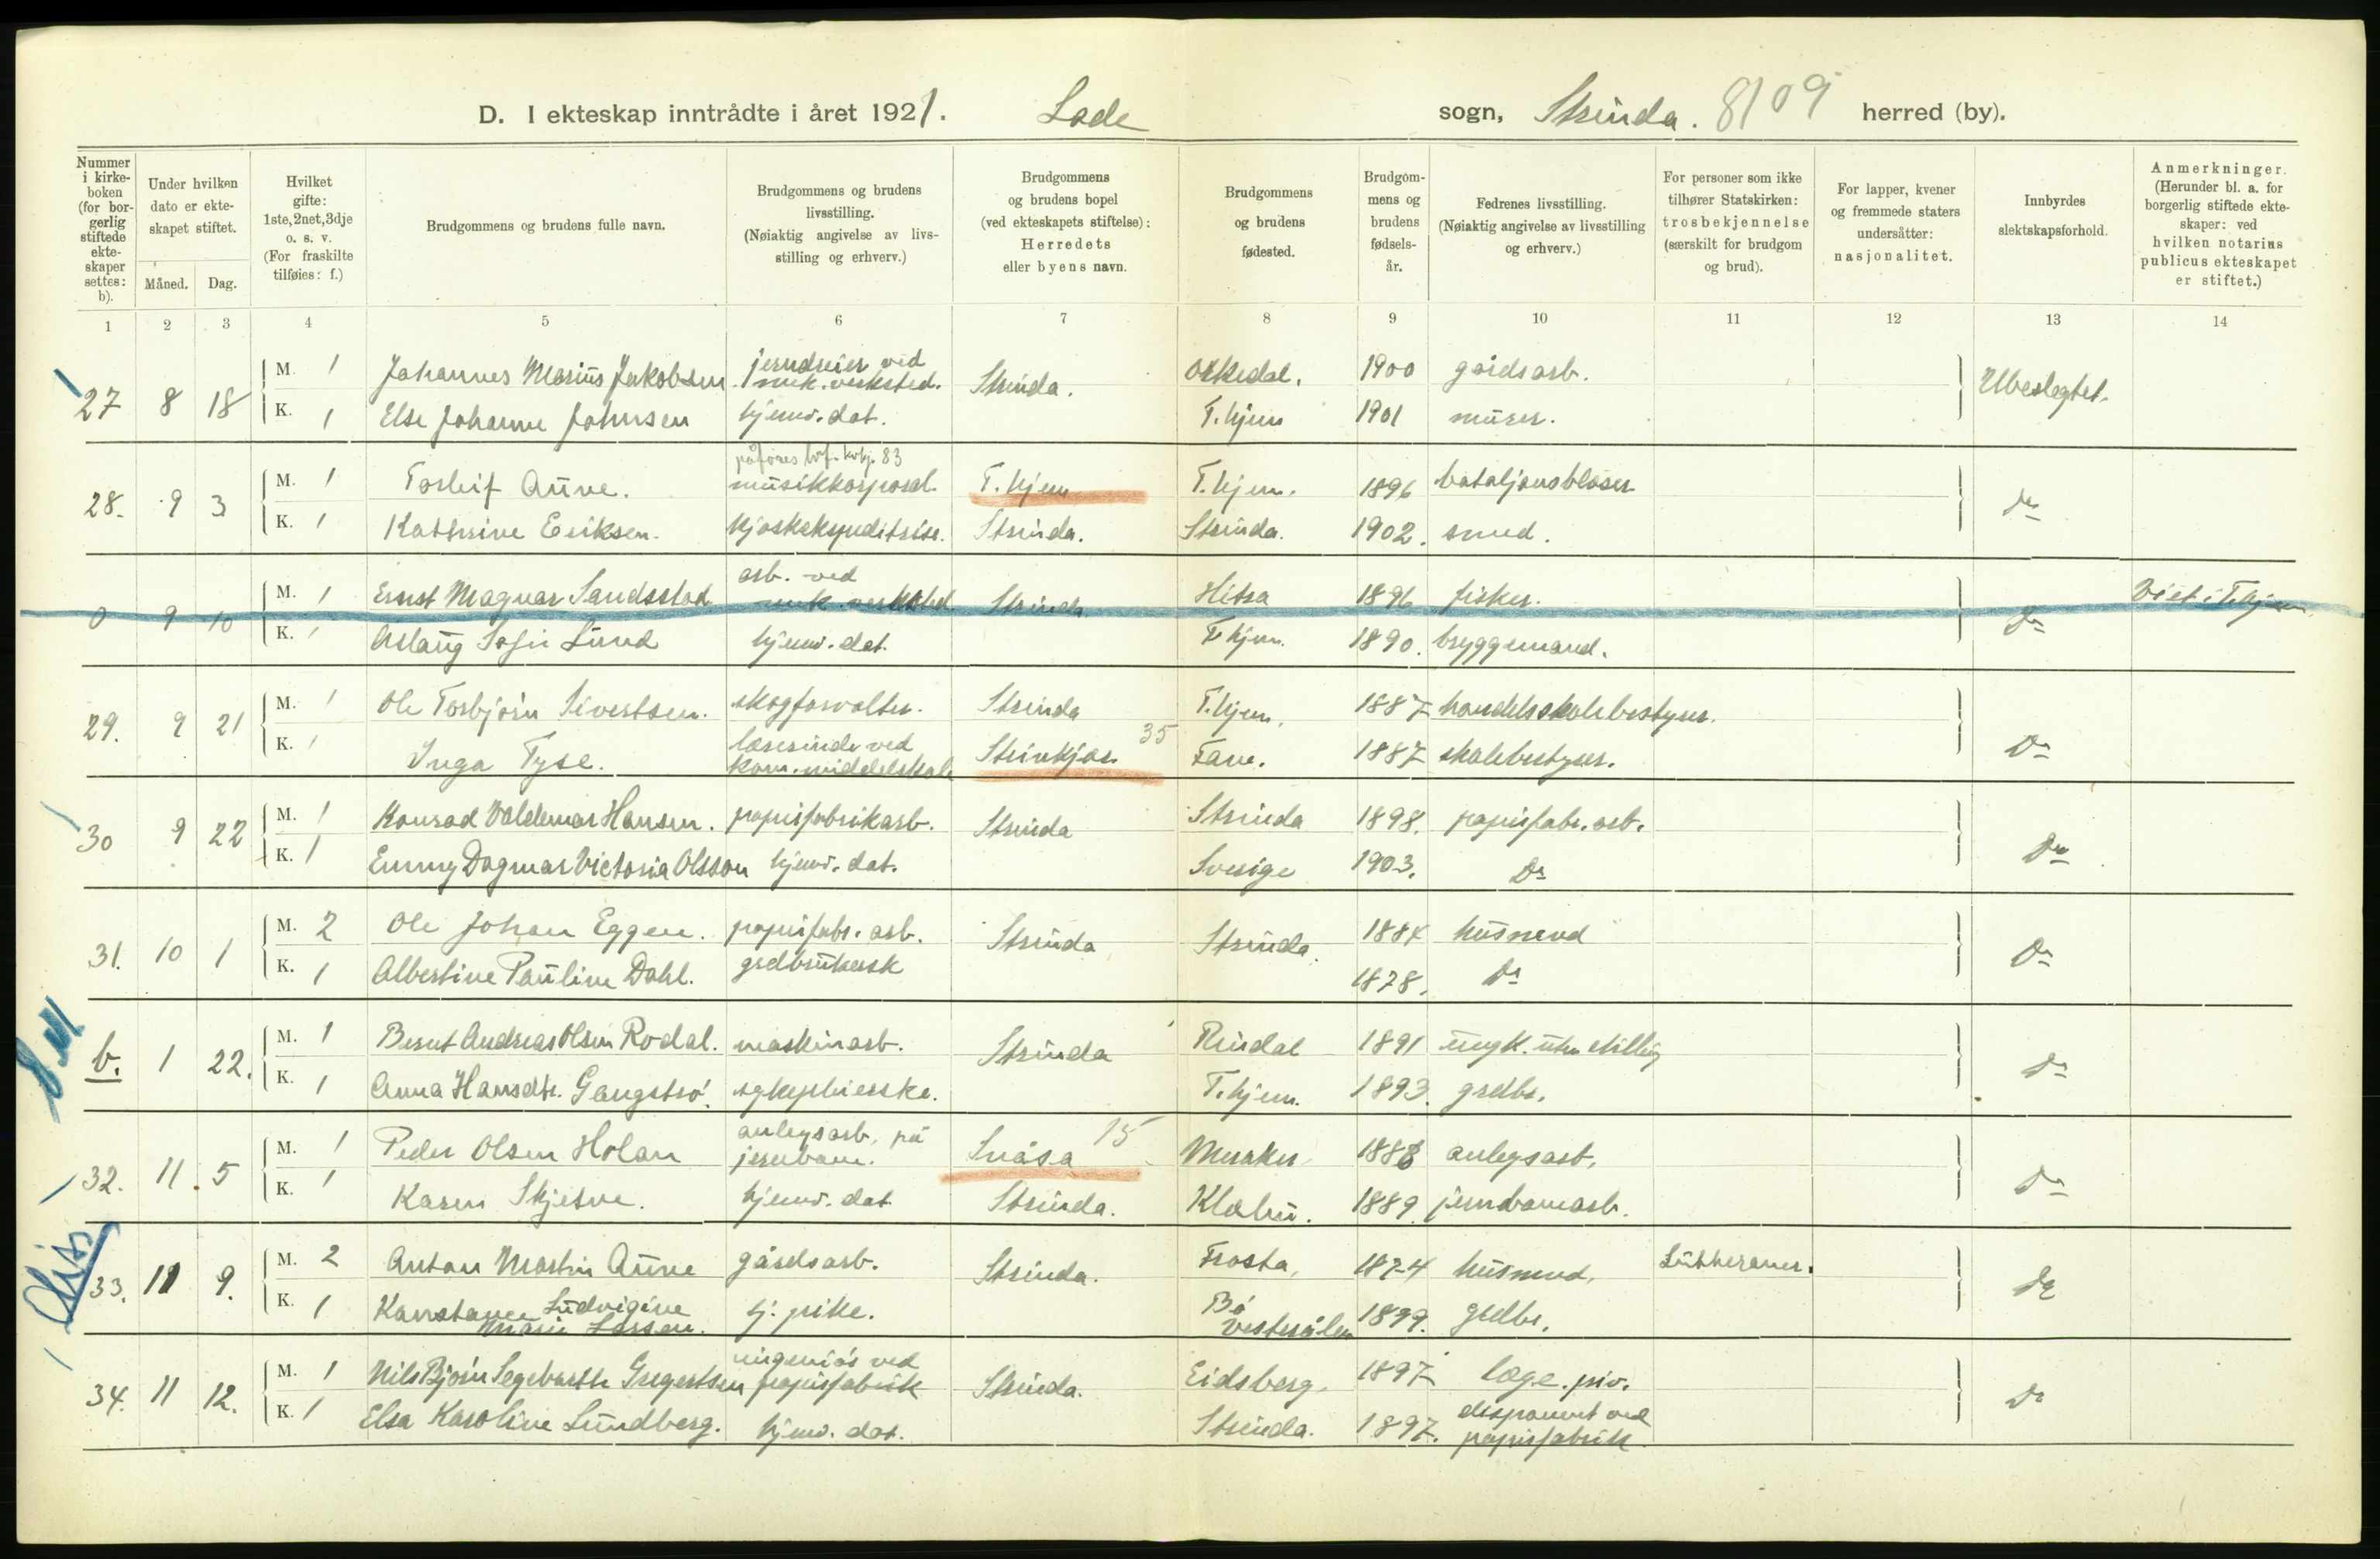 D. I ekteskap inntrådte i året 1921. Lade sogn, Strinda. 8109 herred (by).
Nummer i kirkeboken (for borgerlig stiftede ekteskaper settes: b).
Under hvilken dato er ekteskapet stiftet.
Måned. Dag.
Hvilket gifte: 1ste, 2net, 3dje o. s. v. (For fraskilte tilføies: f.)
Brudgommens og brudens fulle navn.
Brudgommens og brudens livsstilling. (Nøiaktig angivelse av livsstilling og erhverv.)
Brudgommens og brudens bopel (ved ekteskapets stiftelse): Herredets eller byens navn.
Brudgommens og brudens fødested.
Brudgommens og brudens fødselsår.
Fedrenes livsstilling. (Nøiaktig angivelse av livsstilling og erhverv.)
For personer som ikke tilhører Statskirken: trosbekjennelse (særskilt for brudgom og brud).
For lapper, kvener og fremmede staters undersåtter: nasjonalitet.
Innbyrdes slektskapsforhold.
Anmerkninger. (Herunder bl. a. for borgerlig stiftede ekteskaper: ved hvilken notarius publicus ekteskapet er stiftet.)
1 2 3 4 5 6 7 8 9 10 11 12 13 14
27 8 18 M. 1 Johannes Marius Jakobsen jerndreier ved mek. verksted. Strinda. Orkedal. 1900 gårdsarb. Ubeslegtet.
K. 1 Else Johanne Johnsen hjemv. dat. T.hjem 1901 murer.
28. 9 3 M. 1 Torleif Aune. musikkorporal. T.hjem T.hjem. 1896 bataljonsblåser Do
K. 1 Kathrine Eriksen. kjoskekspeditrise. Strinda. Strinda. 1902. smed.
0 9 10 M. 1 Ernst Magnar Sandstad arb. ved mek. verksted Strinda Hitra 1896 fisker. Do Viet i T.hjem.
K. 1 Aslaug Sofie Lund hjemv. dat. T.hjem. 1890. bryggemand.
29. 9 21 M. 1 Ole Torbjørn Sivertsen. skogforvalter. Strinda T.hjem. 1887 handelsskolebestyrer. Do
K. 1 Inga Tyse. lærerinde ved kom. middelskole Steinkjær 35 Fane. 1887 skolebestyrer.
30 9 22 M. 1 Konrad Valdemar Hansen. papirfabrikarb. Strinda Strinda 1898. papirfabr. arb. Do
K. 1 Emmy Dagmar Victoria Olsson hjemv. dat. Sverige 1903. Do
31. 10 1 M. 2 Ole Johan Eggen. papirfabr. arb. Strinda Strinda. 1884 husmend Do
K. 1 Albertine Pauline Dahl. grdbrukersk 1878. Do
b. 1 22. M. 1 Bernt Andreas Olsen Rodal. maskinarb. Strinda Rindal 1891 ungk. uten stilling Do
K. 1 Anna Hansdtr. Gangstrø. sykepleierske. T.hjem. 1893. grdbr.
32. 11. 5 M. 1 Peder Olsen Holan anlegsarb. på jernbane. Snåsa 15 Meraker 1888 anlegsarb. Do
K. 1 Karen Skjetne. hjemv. dat. Strinda. Klæbu. 1889. jernbanearb.
33. 11 9. M. 2 Anton Martin Aune gårdsarb. Strinda. Frosta, 1874 husmend. Lutheraner. Do
K. 1 Konstance Ludvigine Marie Larsen. tj. pike. Bø Vesterålen 1899. grdbr.
34. 11 12. M. 1 Nils Bjørn Segebarth Gregertsen ingeniør ved papirfabrik Strinda. Eidsberg. 1897 læge. priv. Do
K. 1 Elsa Karoline Lundberg. hjemv. dat. Strinda. 1897. disponent ved papirfabrik